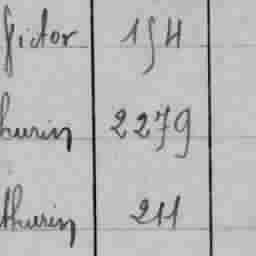 Victor 154
hurin 2279
thurin 211